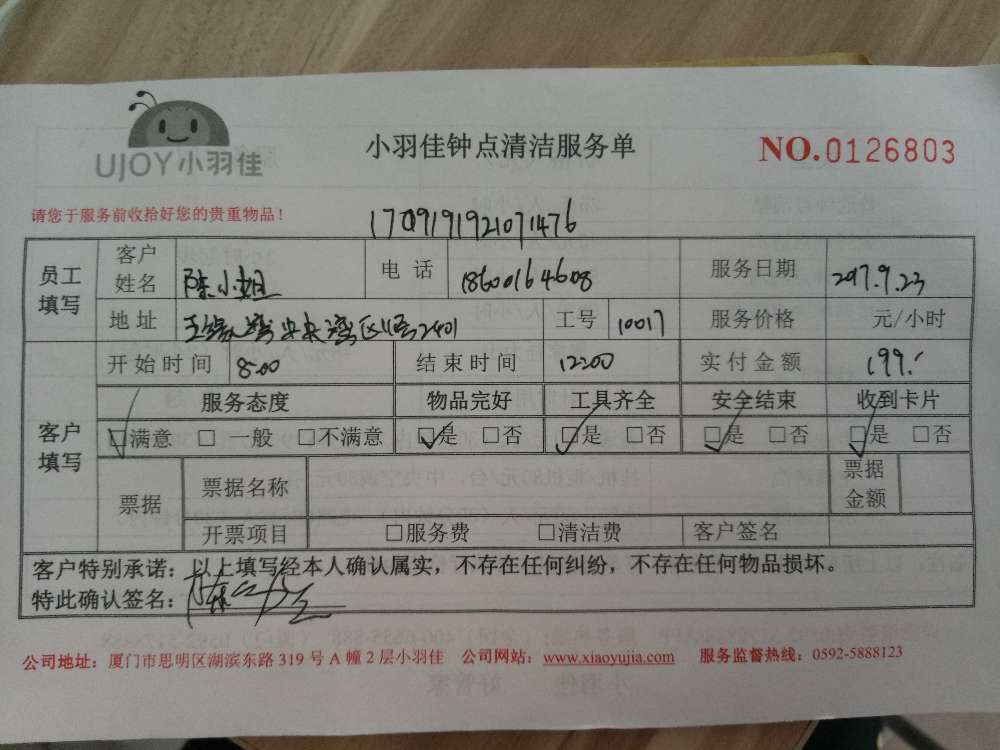 UJOY小羽佳
小羽佳钟点清洁服务单
NO.0126803
请您于服务前收拾好您的贵重物品！
1709191921071476
员工填写 客户姓名 陈小姐 电话 18600164608 服务日期 2017.9.23
地址 2401 工号 10017 服务价格 元/小时
开始时间 8:00 结束时间 12:00 实付金额 199.
客户填写 服务态度 物品完好 工具齐全 安全结束 收到卡片
☑满意 □一般 □不满意 ☑是 □否 ☑是 □否 ☑是 □否 ☑是 □否
票据 票据名称 票据金额
开票项目 □服务费 □清洁费 客户签名
客户特别承诺：以上填写经本人确认属实，不存在任何纠纷，不存在任何物品损坏。
特此确认签名：
公司地址：厦门市思明区湖滨东路319号A幢2层小羽佳 公司网站：www.xiaoyujia.com 服务监督热线：0592-5888123